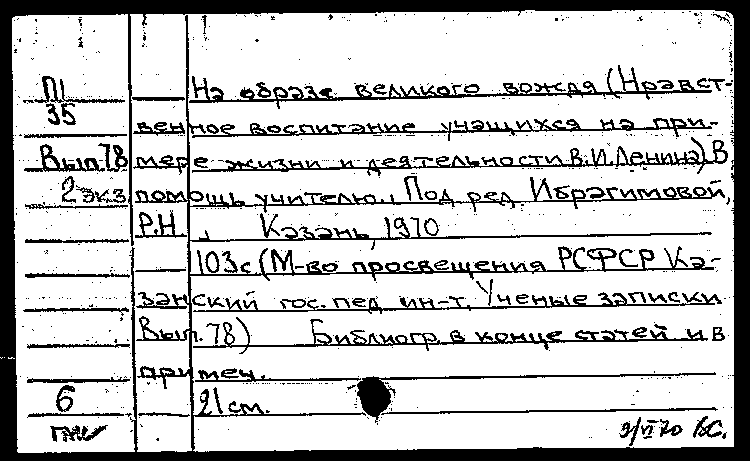 П1 На образе великого вождя (Нравст-
35 венное воспитание учащихся на при-
Вып.78 мере жизни и деятельности В.И.Ленина) В
2 экз. помощь учителю. Под ред. Ибрагимовой,
Р.Н. Казань, 1970
103с (М-во просвещения РСФСР Ка-
занский гос. пед. ин-т. Ученые записки
Вып. 78) Библиогр. в конце статей и в
примеч.
6 21 см.
9/VI 70